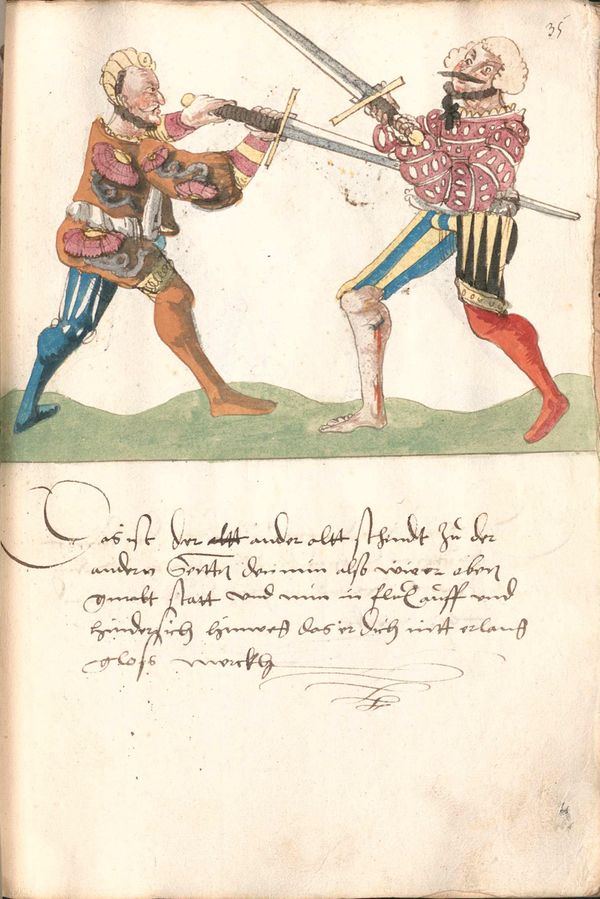 35
Das ist der ander altt schindt zu der
andern seitten den nim also wie er oben
gmalt statt und nim in flux auff und
hindersich hinweg das er dich nitt erlang
gloss merckh